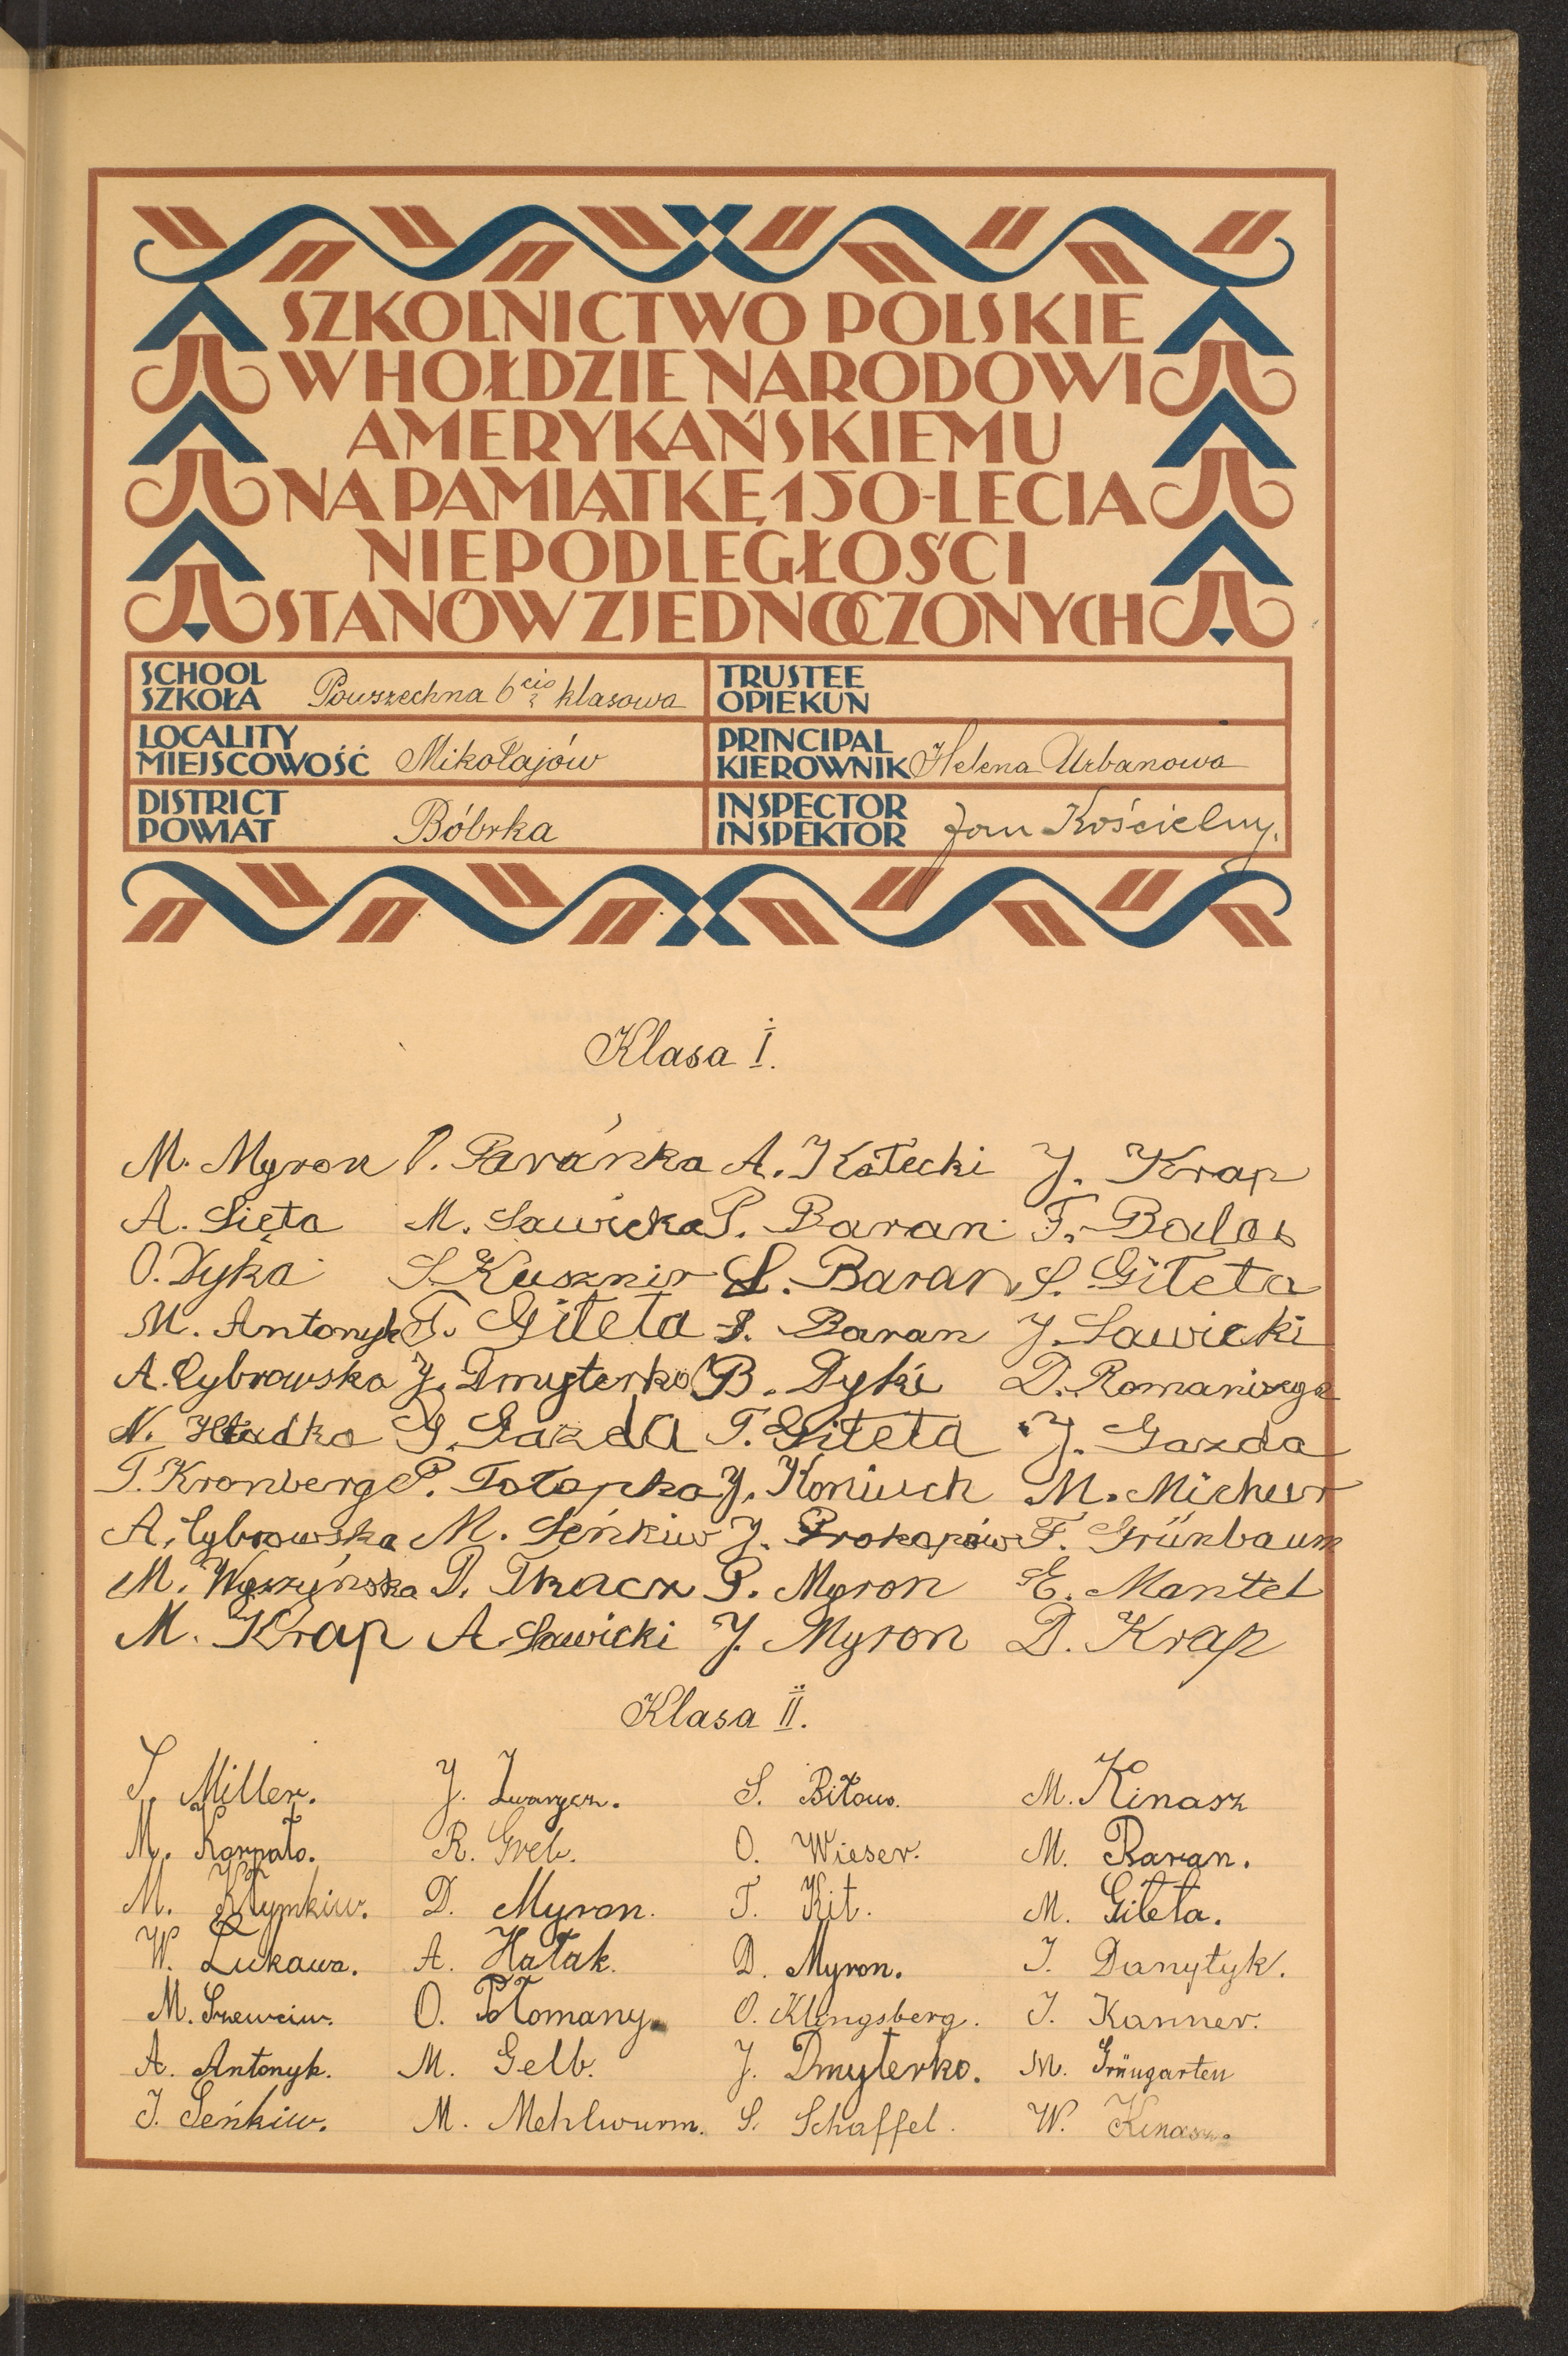 SZKOLNICTWO POLSKIE
W HOŁDZIE NARODOWI
AMERYKAŃSKIEMU
NA PAMIĄTKĘ 150-LECIA
NIEPODLEGŁOŚCI
STANÓW ZJEDNOCZONYCH
SCHOOL
SZKOŁA Powszechna 6cio klasowa
TRUSTEE
OPIEKUN
LOCALITY
MIEJSCOWOŚĆ Mikołajów
PRINCIPAL
KIEROWNIK Helena Urbanowa
DISTRICT
POWIAT Bóbrka
INSPECTOR
INSPEKTOR Jan Kościelny.
Klasa I.
M. Myron Paránka A. Kołecki J. Krap
A. Sięta M. Sawicka P. Baran F. Balos
O. Dyka S. Kusznir S. Baran S. Giteta
M. Antonyk T. Giteta S. Baran J. Sawicki
A. Cybrowska J. Dmyterko B. Dyki D.
N. Hładka G. Gazda T. Giteta J. Gazda
T. Kronberg P. Potopka J. Koniuch M.
A. Cybrowska M. Seńkiw J. Prokopów F. Grünbaum
M. Wyszyńska D. Tkacz P. Myron E. Mantel
M. Krap A. Sawicki J. Myron D. Krap
Klasa II.
S. Miller. J. Zwarycz. S. Biłow. M. Kinasz
M. Karpato. R. Greb. O. Wieser. M. Baran.
M. Kłymkiw. D. Myron. T. Kit. M. Giteta.
W. Łukawa. A. Hałak. D. Myron. J. Danyłyk.
M. Szewciw. O. Połomany. O. Klingsberg. J. Kanner.
A. Antonyk. M. Gelb. J. Dmyterko. M. Grüngarten
J. Seńkiw. M. Mehlwurm. S. Schaffel. W. Kinasz.